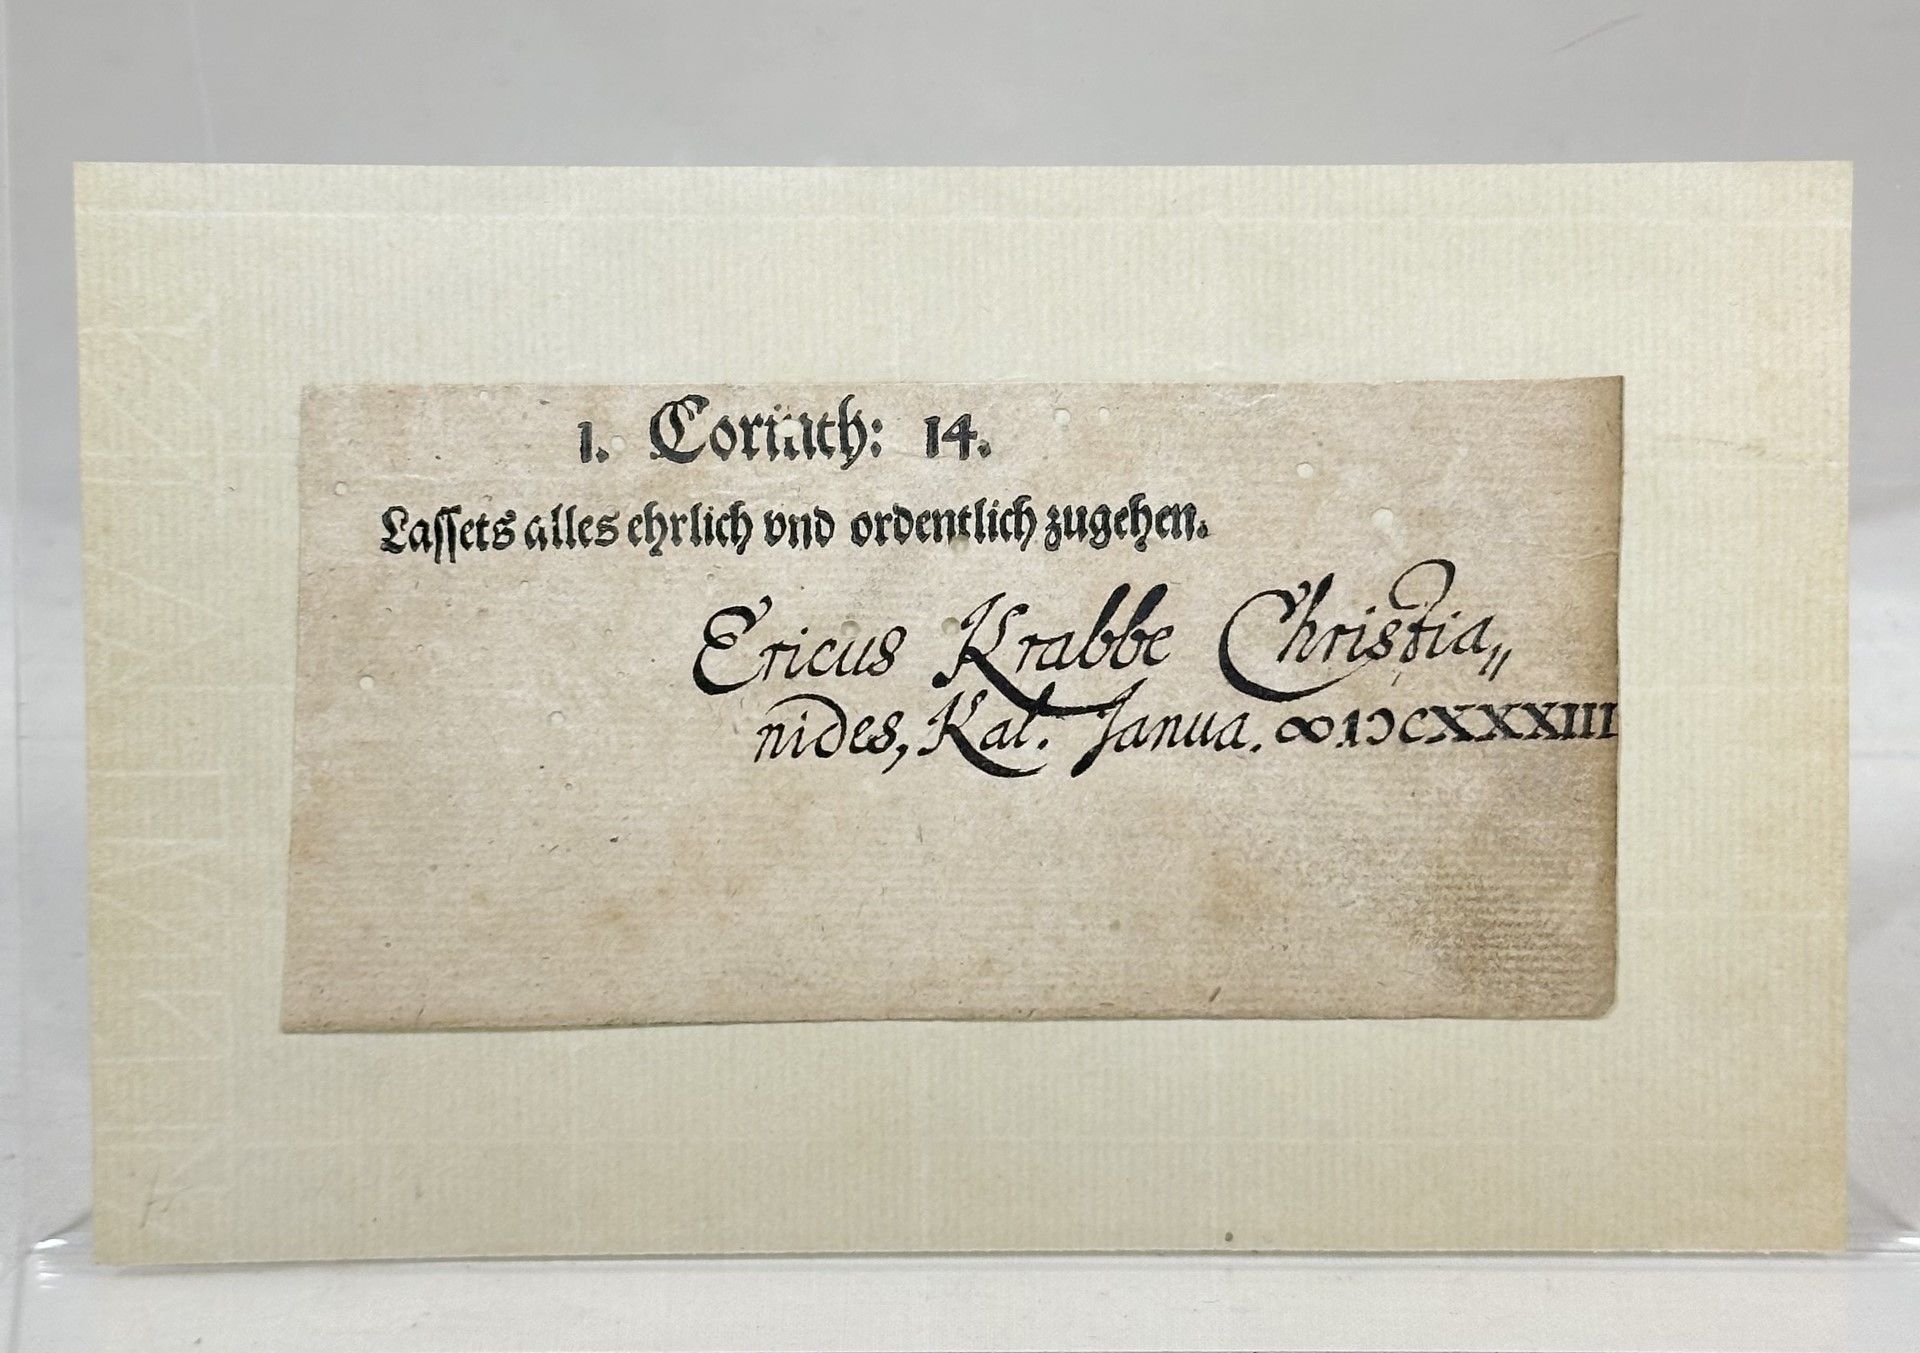 1. Corinth: 14.
Lassets alles ehrlich vnd ordentlich zugehen.
Ericus Krabbe Christia„
nides, Kal. Janua. ∞.IↃCXXXXIII